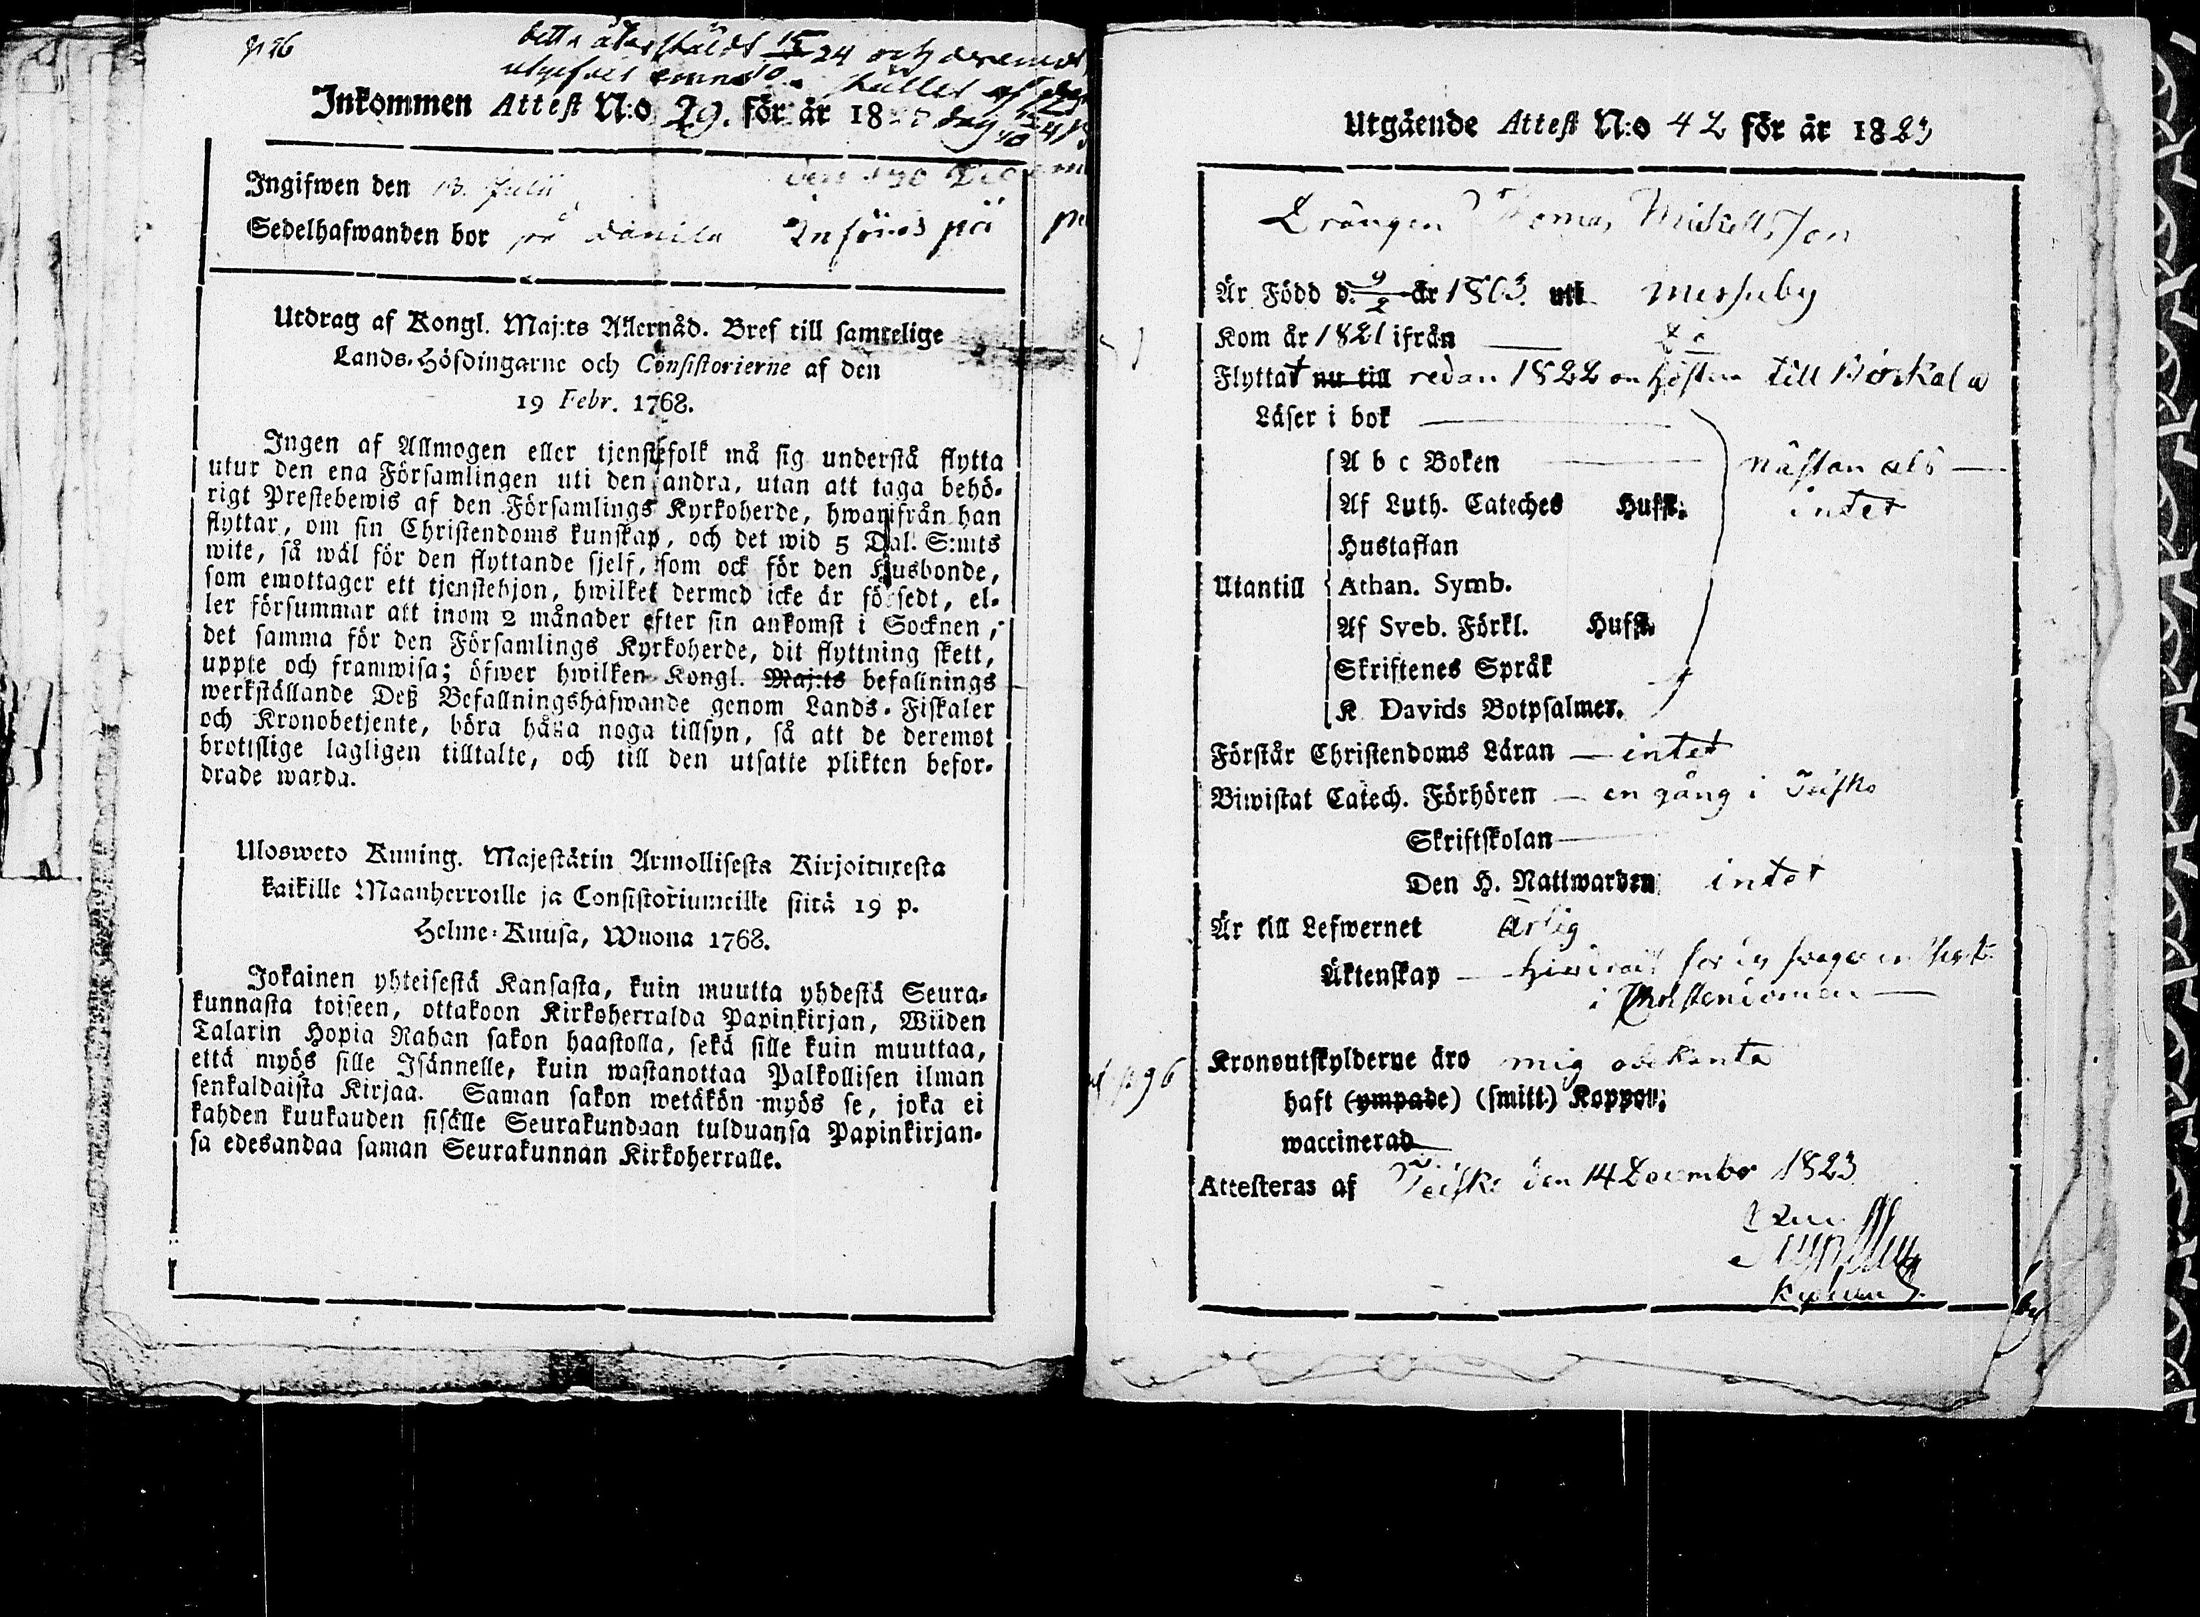 p 96
detta återstäldt 15/10 24 och deremot
utgifvit stället af
Inkommen Attest N:o 29. för år 18 dag
Ingifwen den 13. Julii
Sedelhafwanden bor på Danila Införes på
Utdrag af Kongl. Maj:ts Allernåd. Bref till samtelige
Lands-Höfdingarne och Consistorierne af den
19 Febr. 1768.
Ingen af Allmogen eller tjenstefolk må sig understå flytta
utur den ena Församlingen uti den andra, utan att taga behö-
rigt Prestebewis af den Församlings Kyrkoherde, hwarifrån han
flyttar, om sin Christendoms kunskap, och det wid 5 Dal. S:mts
wite, så wäl för den flyttande sjelf, som ock för den Husbonde,
som emottager ett tjenstehjon, hwilket dermed icke är försedt, el-
ler försummar att inom 2 månader efter sin ankomst i Socknen,
det samma för den Församlings Kyrkoherde, dit flyttning skett,
uppte och framwisa; öfwer hwilken Kongl. Maj:ts befallnings
werkställande Deß Befallningshafwande genom Lands-Fiskaler
och Kronobetjente, böra hålla noga tillsyn, så att de deremot
brottslige lagligen tilltalte, och till den utsatte plikten befor-
drade warda.
Ulosweto Kuning. Majestätin Armollisesta Kirjoituxesta
kaikille Maanherroille ja Consistoriumeille siitä 19 p.
Helme-Kuusa, Wuona 1768.
Jokainen yhteisestä Kansasta, kuin muutta yhdestä Seura-
kunnasta toiseen, ottakoon Kirkoherralda Papinkirjan, Wiiden
Talarin Hopia Rahan sakon haastolla, sekä sille kuin muuttaa,
että myös sille Isännelle, kuin wastanottaa Palkollisen ilman
senkaldaista Kirjaa. Saman sakon wetäkön myös se, joka ei
kahden kuukauden sisälle Seurakundaan tulduansa Papinkirjan-
sa edesandaa saman Seurakunnan Kirkoherralle.
Utgående Attest N:o 42 för år 1823
Drängen Thomas Michellsson
Är Född d. 9/2 år 1803. uti Messuby
Kom år 1821 ifrån do
Flyttat nu till redan 1822 om hösten till Birkala
Läser i bok
A b c Boken nästan als
Af Luth. Cateches Hufst. intet
Hustaflan
Utantill Athan. Symb.
Af Sveb. Förkl. Hufst.
Skriftenes Språk
K Davids Botpsalmer.
Förstår Christendoms Läran — intet
Biwistat Catech. Förhören — en gång i Teisko
Skriftskolan
Den H. Nattwarden intet
Är till Lefwernet Ärlig
Äktenskap — hindrad för sin swaga insigt
i Christendomen —
Kronoutskylderne äro mig obekanta
p 96
haft (ympade) (smitt.) Koppor;
waccinerad
Attesteras af Teisko den 14 December 1823